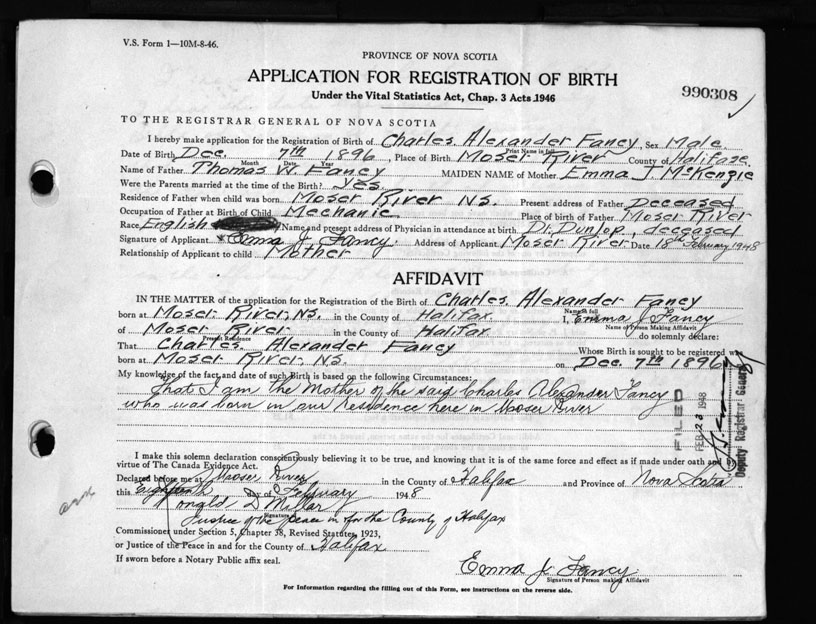 V.S. Form 1—10M-8-46.
PROVINCE OF NOVA SCOTIA
APPLICATION FOR REGISTRATION OF BIRTH
Under the Vital Statistics Act, Chap. 3 Acts 1946
990308
TO THE REGISTRAR GENERAL OF NOVA SCOTIA
I hereby make application for the Registration of Birth of Charles. Alexander Fancy, Sex Male
Print Name in full
Date of Birth Dec. 7th 1896, Place of Birth Moser River County of Halifax.
Month Date Year
Name of Father Thomas W. Fancy MAIDEN NAME of Mother Emma J McKenzie
Were the Parents married at the time of the Birth? Yes.
Residence of Father when child was born Moser River N.S. Present address of Father Deceased
Occupation of Father at Birth of Child Mechanic Place of birth of Father Moser River
Race English Name and present address of Physician in attendance at birth Dr. Dunlop, deceased
Signature of Applicant Emma J. Fancy. Address of Applicant Moser River Date 18th February 1948
Relationship of Applicant to child Mother
AFFIDAVIT
IN THE MATTER of the application for the Registration of the Birth of Charles. Alexander Fancy
Name in full
born at Moser. River, N.S. in the County of Halifax. I, Emma J Fancy
Name of Person Making Affidavit
of Moser River in the County of Halifax. do solemnly declare:
Present Residence
That Charles. Alexander Fancy Whose Birth is sought to be registered was
born at Moser River, N.S. on Dec. 7th 1896
My knowledge of the fact, and date of such Birth is based on the following Circumstances:
That I am the Mother of the said Charles Alexander Fancy
who was born in our residence here in Moser River
FILED
FEB 23 1948
Deputy Registrar General
I make this solemn declaration conscientiously believing it to be true, and knowing that it is of the same force and effect as if made under oath and
virtue of The Canada Evidence Act.
Declared before me at Moser River in the County of Halifax and Province of Nova Scotia
this Eighteenth Day of February 1948
Ronald D Millar
Signature
Justice of the peace in for the County of Halifax
Commissioner under Section 5, Chapter 38, Revised Statutes, 1923,
or Justice of the Peace in and for the County of Halifax
If sworn before a Notary Public affix seal.
Emma J. Fancy
Signature of Person making Affidavit
For Information regarding the filling out of this Form, see instructions on the reverse side.